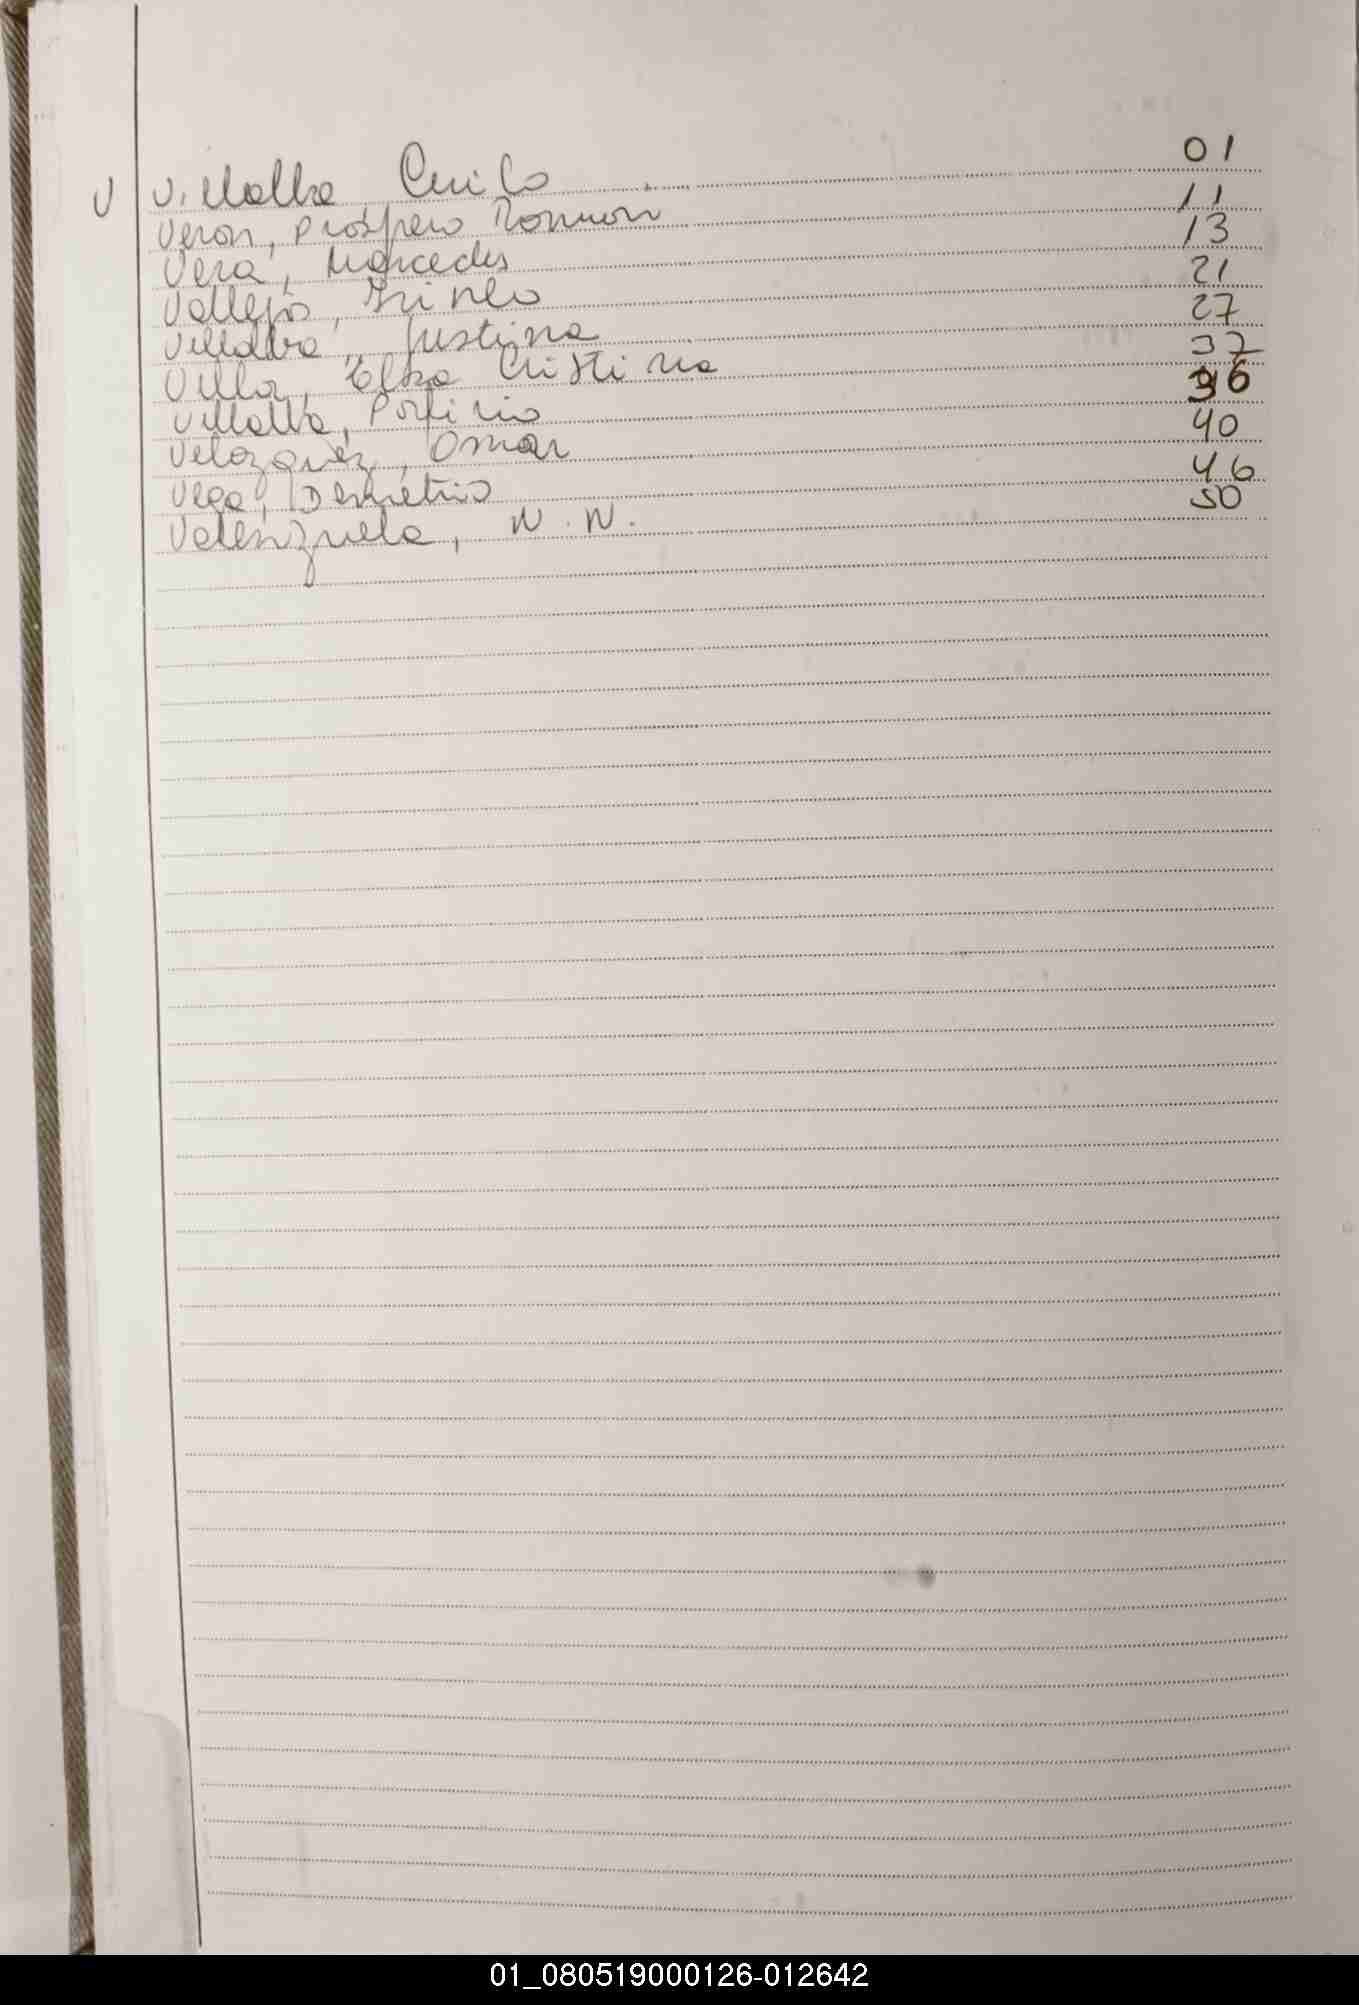 V Villalba, Cirilo 01
Veron, Prospero Ramon 11
Vera, Mercedes 13
Vallejo, 21
Villalba, Justina 27
Villa, Elsa Cristina 37
Villalba, Porfirio 36
Velazquez, Omar 40
Vega, Demetrio 46
Valenzuela, N.N. 50
01_080519000126-012642